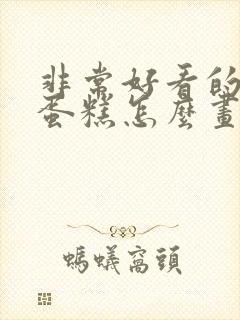 非常好看的
蛋糕怎麼畫
螞蟻窩頭